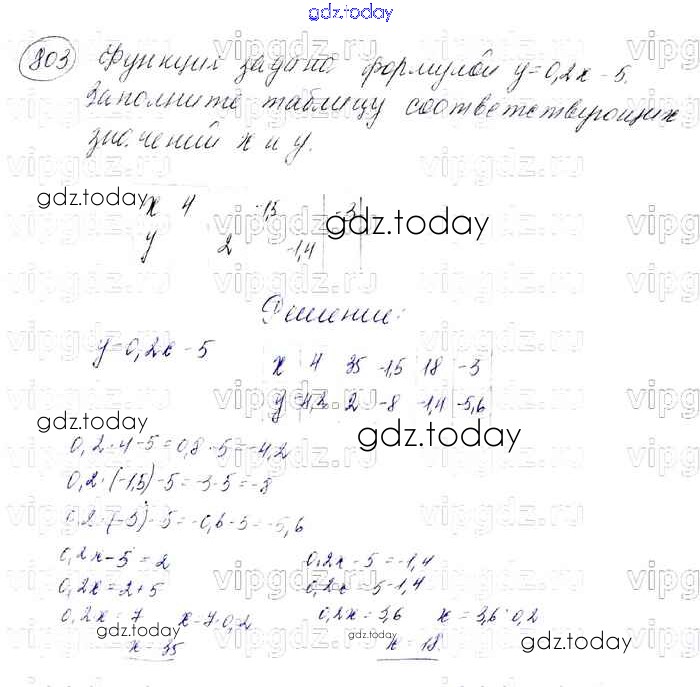 gdz.today
803 Функция задана формулой y=0,2x-5.
Заполните таблицу соответствующих
значений x и y.
gdz.today
x 4 -1,5 -3
gdz.today
y 2 -1,4
Решение:
y=0,2x-5
x 4 35 -1,5 18 -3
y -4,2 2 -8 -1,4 -5,6
gdz.today
gdz.today
0,2·4-5=0,8-5=-4,2
0,2·(-1,5)-5=-3-5=-8
0,2·(-3)-5=-0,6-5=-5,6
0,2x-5=2 0,2x-5=-1,4
0,2x=2+5 0,2x=5-1,4
0,2x=7 x=7:0,2 0,2x=3,6 x=3,6:0,2
x=35 x=18
gdz.today
gdz.today
gdz.today